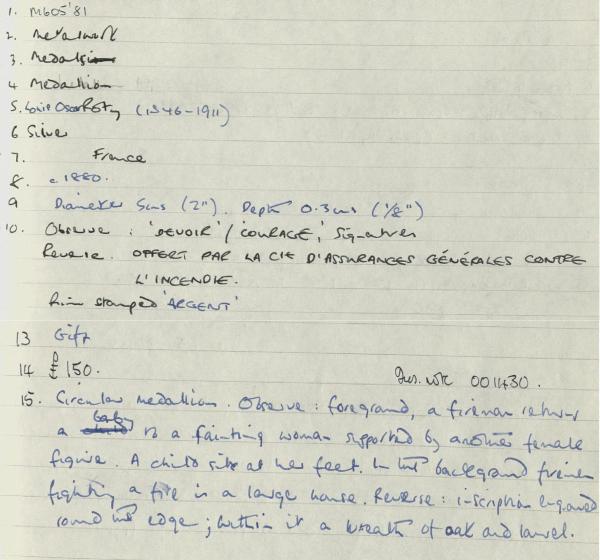 1. M605'81
2. Metalwork
3. Medals
4 Medallion
5. Louis Oscar Roty (1846-1911)
6 Silver
7. France
8. c 1880.
9 Diameter 5cms (2"). Depth 0.3cms (1/8")
10. Obverse : 'DEVOIR' / 'COURAGE', Signature
Reverse. OFFERT PAR LA CIE D'ASSURANCES GÉNÉRALES CONTRE
L'INCENDIE.
Rim stamped 'ARGENT'
13 Gift
14 £150.
001430.
15. Circular medallion. Obverse : foreground, a fireman returns
a baby to a fainting woman supported by another female
figure. A child sits at her feet. In the background firemen
fighting a fire in a large house. Reverse : inscription engraved
round the edge ; within it a wreath of oak and laurel.